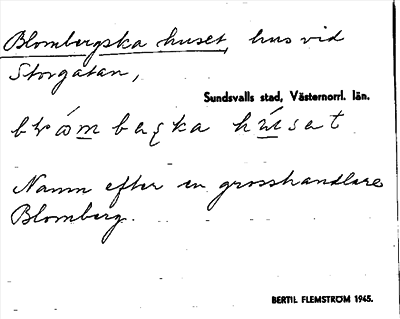 Blombergska huset, hus vid
Storgatan,
Sundsvalls stad, Västernorrl. län.
húsat
Namn efter en grosshandlare
Blomberg.
BERTIL FLEMSTRÖM 1945.